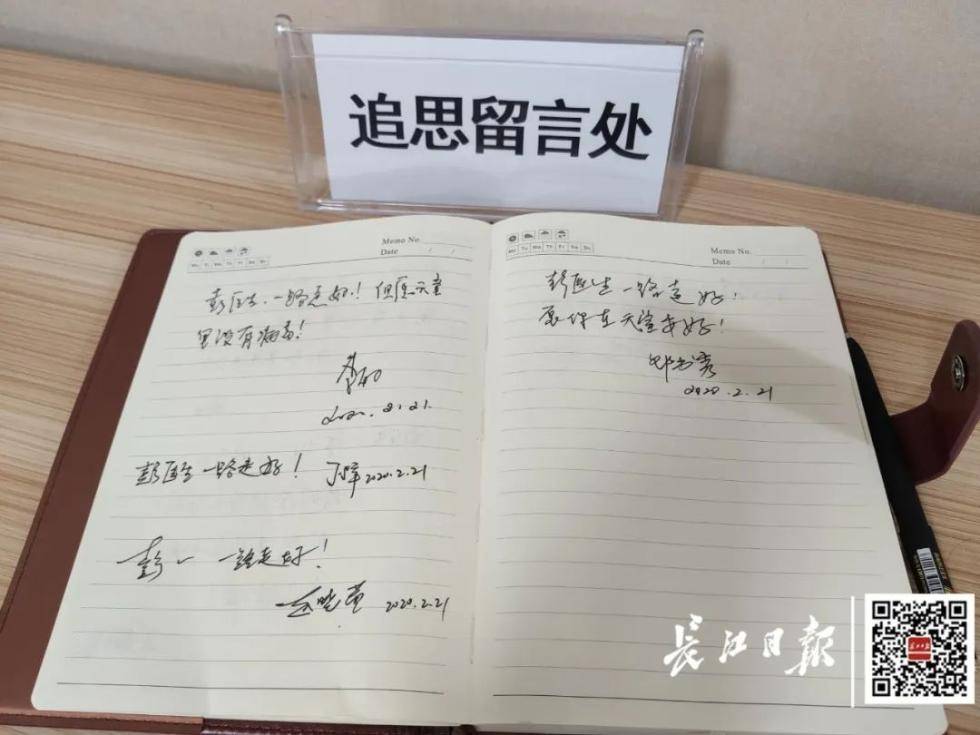 追思留言处
Memo No.
Date / /
Mo Tu We Th Fr Sa Su
彭医生,一路走好!但愿天堂
里没有病毒!
2020.2.21.
彭医生一路走好!
2020.2.21
彭 一路走好!
2020.2.21
Memo No.
Date / /
Mo Tu We Th Fr Sa Su
彭医生一路走好!
愿你在天堂安好!
2020.2.21
长江日报